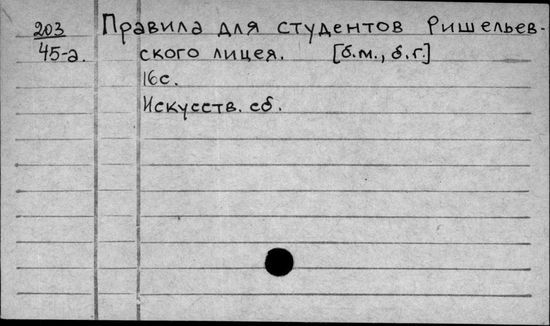 203 Правила для студентов Ришельев-
45-а. ского лицея. [б.м., б.г.]
16с.
Искусств. сб.